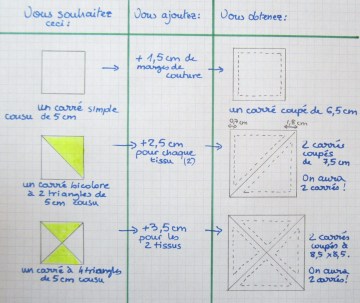 Vous souhaitez
ceci:
Vous ajoutez:
Vous obtenez:
+ 1,5 cm de
marges de
couture
un carré simple
cousu de 5 cm
un carré coupé de 6,5 cm
0,7 cm
1,8 cm
+2,5 cm
pour chaque
tissu (2)
2 carrés
coupés
de 7,5 cm
On aura
2 carrés!
un carré bicolore
à 2 triangles de
5 cm cousu
+3,5 cm
pour les
2 tissus
2 carrés
coupés à
8,5 x 8,5.
On aura
2 carrés!
un carré à 4 triangles
de 5 cm cousu